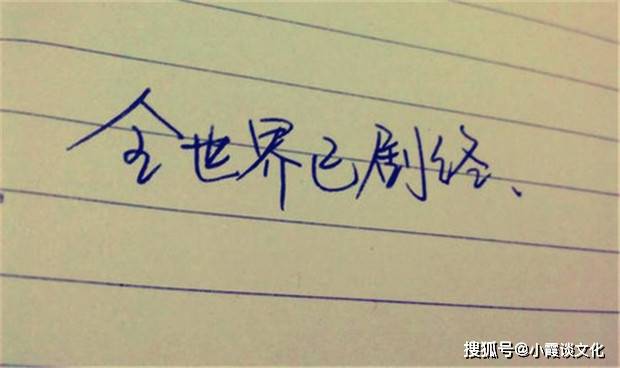 全世界已剧终、
搜狐号@小霞谈文化